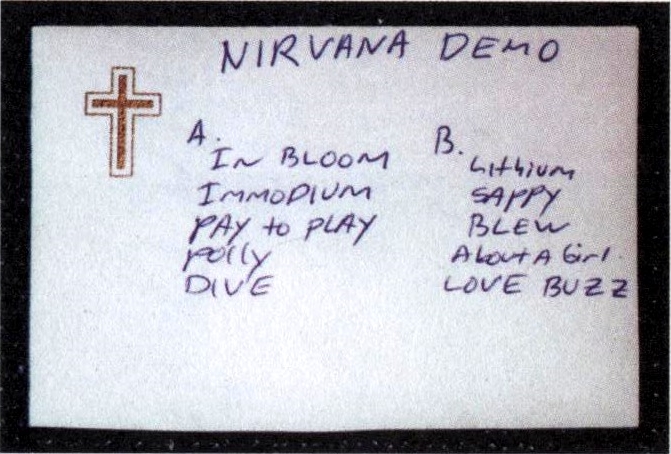 NIRVANA DEMO
A.
IN BLOOM
IMMODIUM
PAY to PLAY
POLLY
DIVE
B.
Lithium
SAPPY
BLEW
About A Girl.
LOVE BUZZ